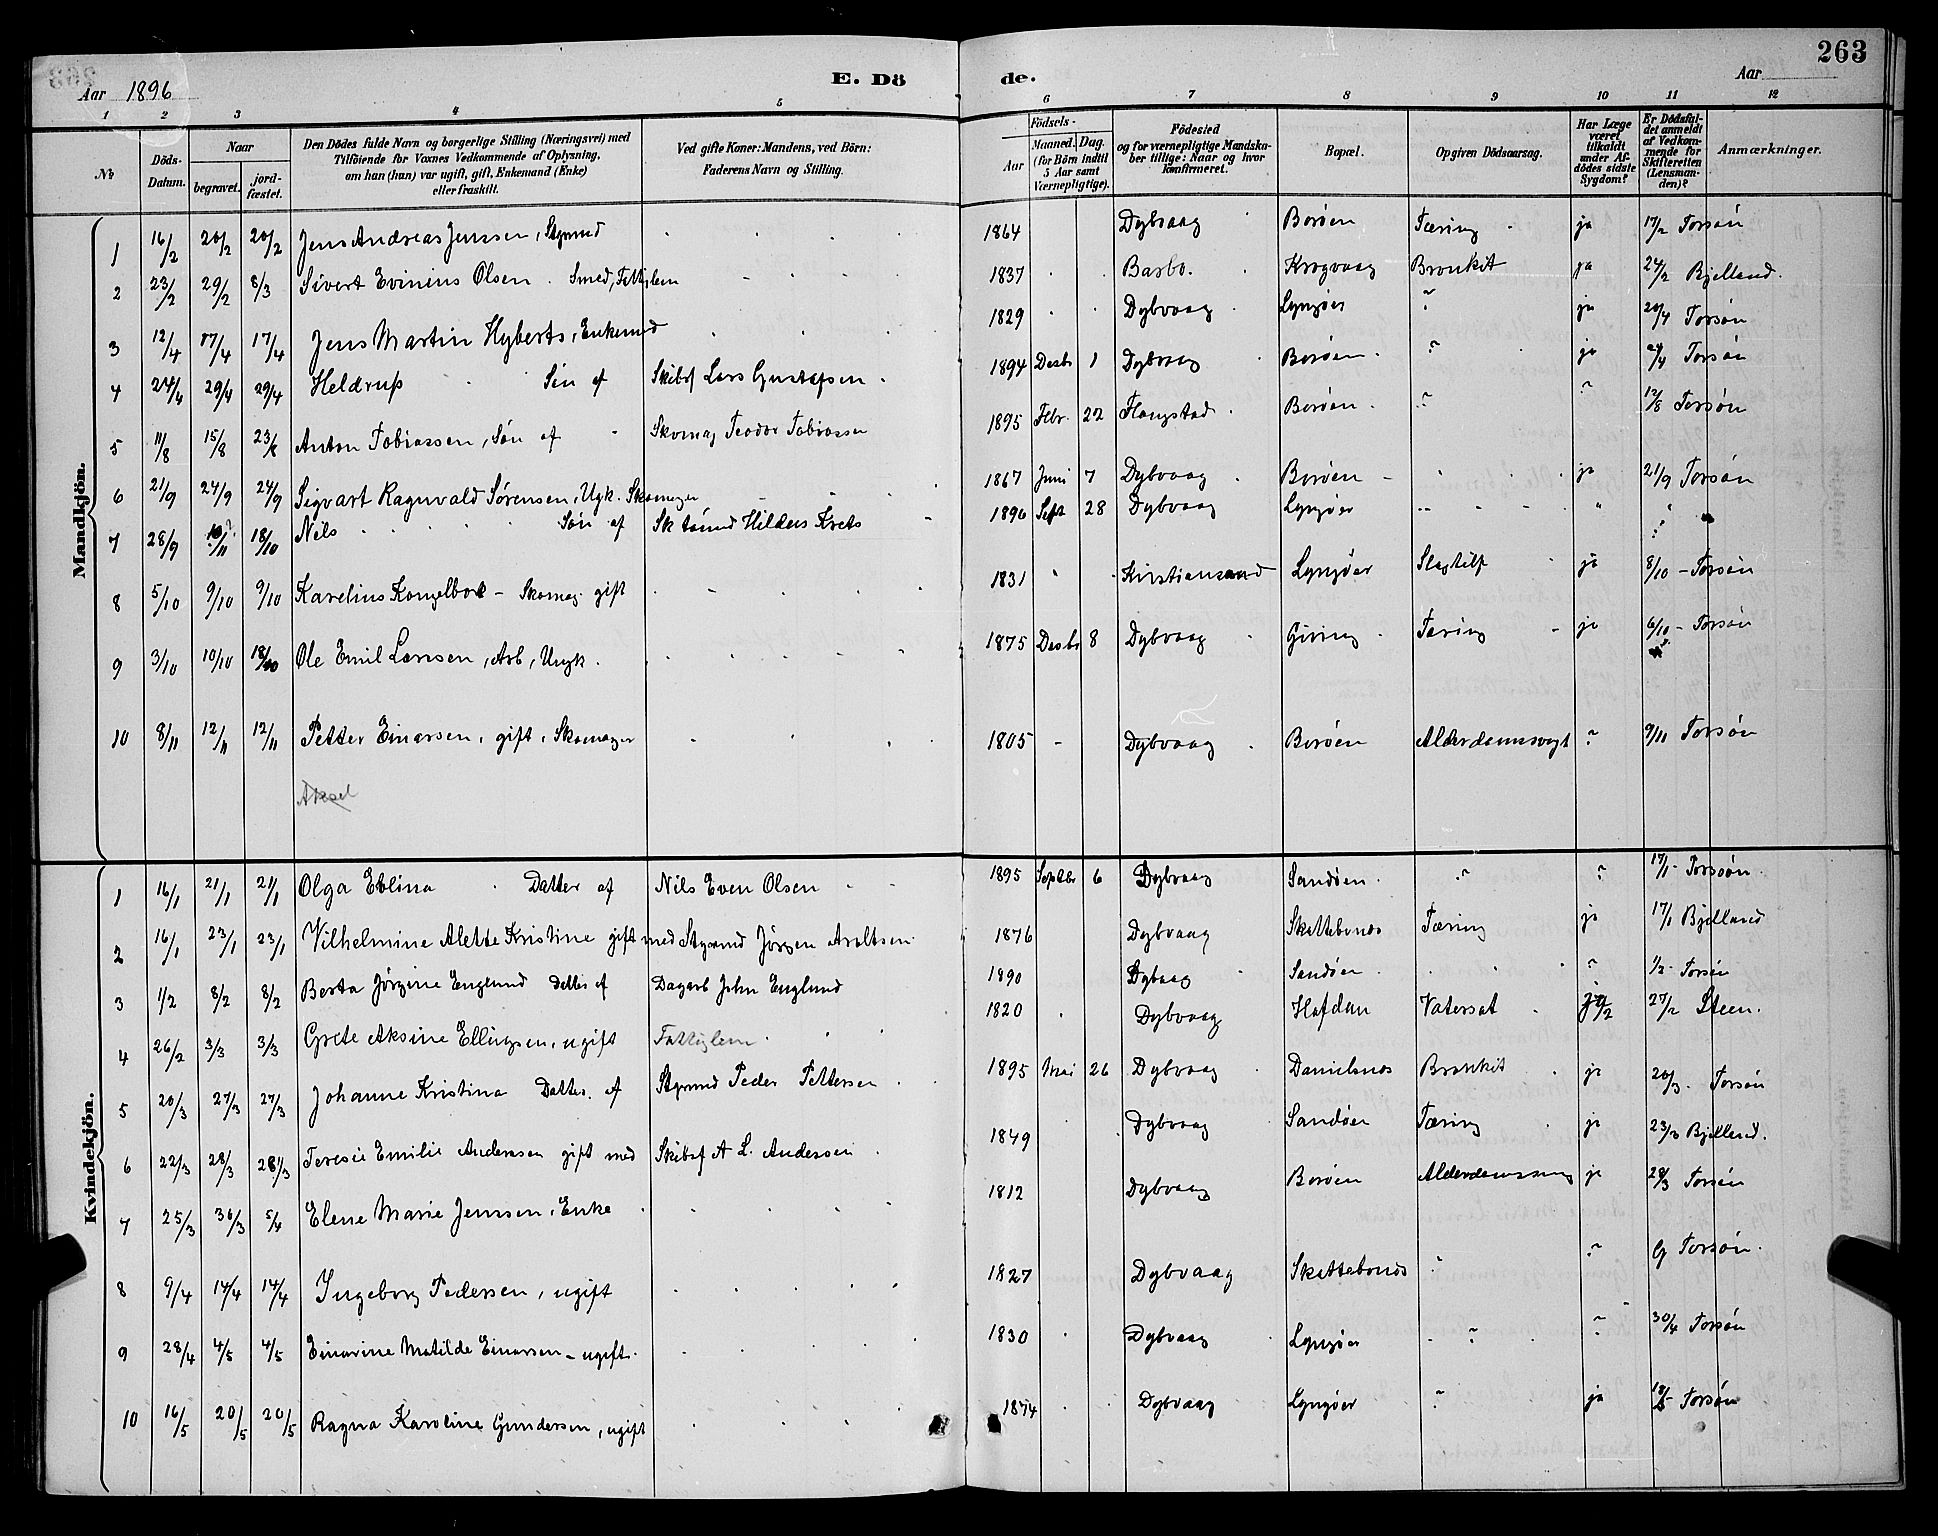 263
Aar 1896
E. Dö de.
Aar
1 2 3 4 5 6 7 8 9 10 11 12
No
Döds-Datum.
Naar
begravet.
jord-fæstet.
Den Dödes fulde Navn og borgerlige Stilling (Næringsvei) med
Tilföiende for Voxnes Vedkommende af Oplysning,
om han (hun) var ugift, gift, Enkemand (Enke)
eller fraskilt.
Ved gifte Koner: Mandens, ved Börn:
Faderens Navn og Stilling.
Födsels-
Aar
Maaned. Dag.
(for Börn indtil
5 Aar samt
Værnepligtige).
Födested
og for værnepligtige Mandska-
ber tillige: Naar og hvor
konfirmeret.
Bopæl.
Opgiven Dödsaarsag.
Har Læge
været
tilkaldt
under Af-
dödes sidste
Sygdom?
Er Dödsfal-
det anmeldt
af Vedkom-
mende for
Skifteretten
(Lensman-
den)?
Anmærkninger.
Mandkjön.
1 16/2 20/2 20/2 Jens Andreas Jenssen, Styrmd 1864 Dybvaag Borøen Tæring ja 17/2 Torsøn
2 23/2 29/2 8/3 Sivert Evinius Olsen. Smed, Fattiglem 1837 Barbo. Krogvaag Bronkit ja 24/2 Bjelland.
3 12/4 17/4 17/4 Jens Martin Hyberts, Enkemd 1829 Dybvaag Lyngøer ? ja 20/4 Torsøn
4 24/4 29/4 29/4 Heldrup Søn af Skibsf Lars Gustafsen 1894 Desbr 1 Dybvaag Borøen ? ja 24/4 Torsøn
5 11/8 15/8 23/8 Anton Tobiassen, Søn af Skomag Teodor Tobiassen 1895 Febr. 22 Flangstad Borøen ? ? 12/8 Torsøn
6 21/9 24/9 24/9 Sigvart Ragnvald Sørensen, Ugk. Skomager 1867 Juni 7 Dybvaag Borøen ja 21/9 Torsøn
7 28/9 18/10 Nils Søn af Hildus Krets 1896 Sept 28 Dybvaag Lyngøer
8 5/10 9/10 9/10 Karelius Kongelbork - Skomag. gift 1831 Kirstiansand Lyngøer Slagtilf ja 8/10 - Torsøn
9 3/10 10/10 18/10 Ole Emil Larsen, Arb, Ungk. 1875 Desbr 8 Dybvaag Giving Tæring ja 6/10 - Torsøn
10 8/11 12/11 12/11 Petter Einarsen, gift, Skomager 1805 - Dybvaag Borøen Alderdomssvagt ? 9/11 Torsøn
Aksel
Kvindekjön.
1 16/1 21/1 21/1 Olga Eblina Datter af Nils Even Olsen 1895 Septbr 6 Dybvaag Sandøen ? ? 17/1 - Torsøn.
2 16/1 23/1 23/1 Vilhelmine Alette Kristine gift med Styrmd Jörgen Aroltsen 1876 Dybvaag Skattebonæs Tæring ja 17/1 Bjelland
3 1/2 8/2 8/2 Berta Jörgine Englund Datter af Dagarb John Englund 1890 Dybvaag Sandøen ? 1/2 - Torsøn
4 26/2 3/3 3/3 Grete Aksine Ellingsen, ugift Fattiglem 1820 Dybvaag Hafdan Vatersot 27/2 Steen.
5 20/3 27/3 27/3 Johanne Kristina Datter. af Styrmd Peder Pettersen 1895 Mai 26 Dybvaag Danielsnæs Bronkit ja 20/3. Torsøn
6 22/3 28/3 28/3 Teresie Emilie Anderssen gift med Skibsf A L. Anderssen 1849 Dybvaag Sandøen Tæring ja 23/3 Bjelland.
7 25/3 30/3 5/4 Elene Marie Jenssen, Enke 1812 Dybvaag Borøen ja 28/3 Torsøn
8 9/4 14/4 14/4 Ingeborg Pedersen, ugift 1827 Dybvaag Skattebonæs ? Torsøn.
9 28/4 4/5 4/5 Einarine Matilde Einarsen - ugift. 1830 Dybvaag Lyngøer ? ? 30/4 Torsøn
10 16/5 20/5 20/5 Ragna Karoline Gundersen, ugift 1874 Dybvaag Lyngøer ? ja 18/5 - Torsøn